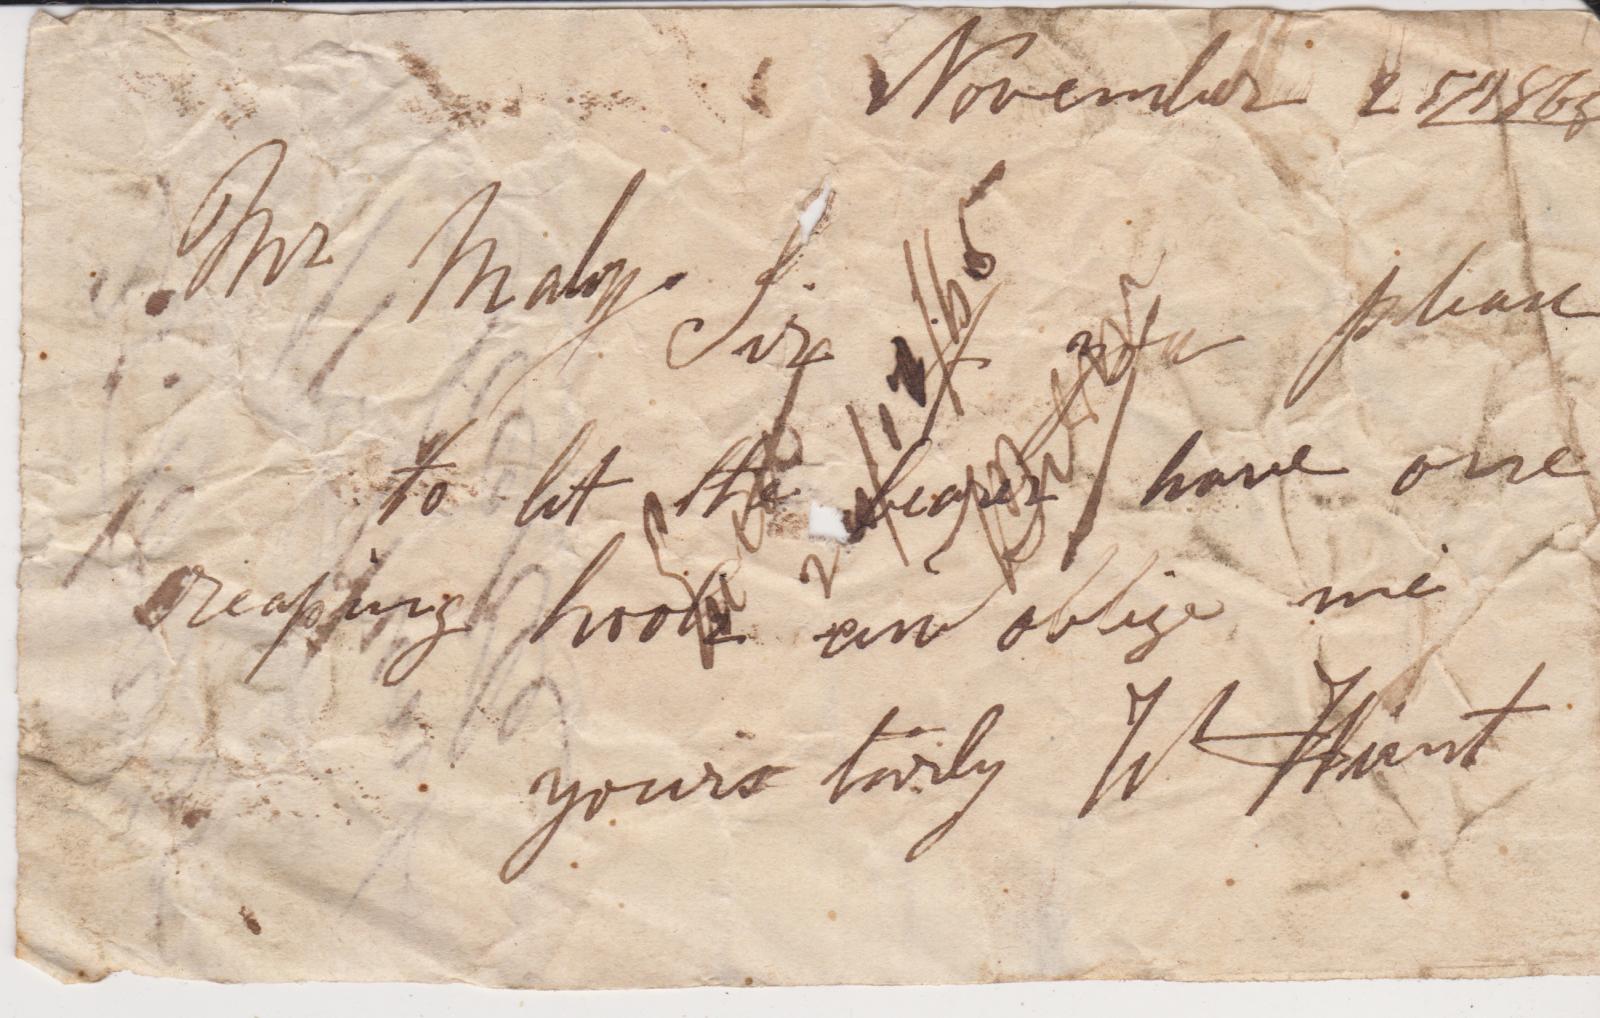 November 25 1865
Mr Maloy. Sir please
to let the bearer have one
reaping hook an oblige me
yours turly W Hunt